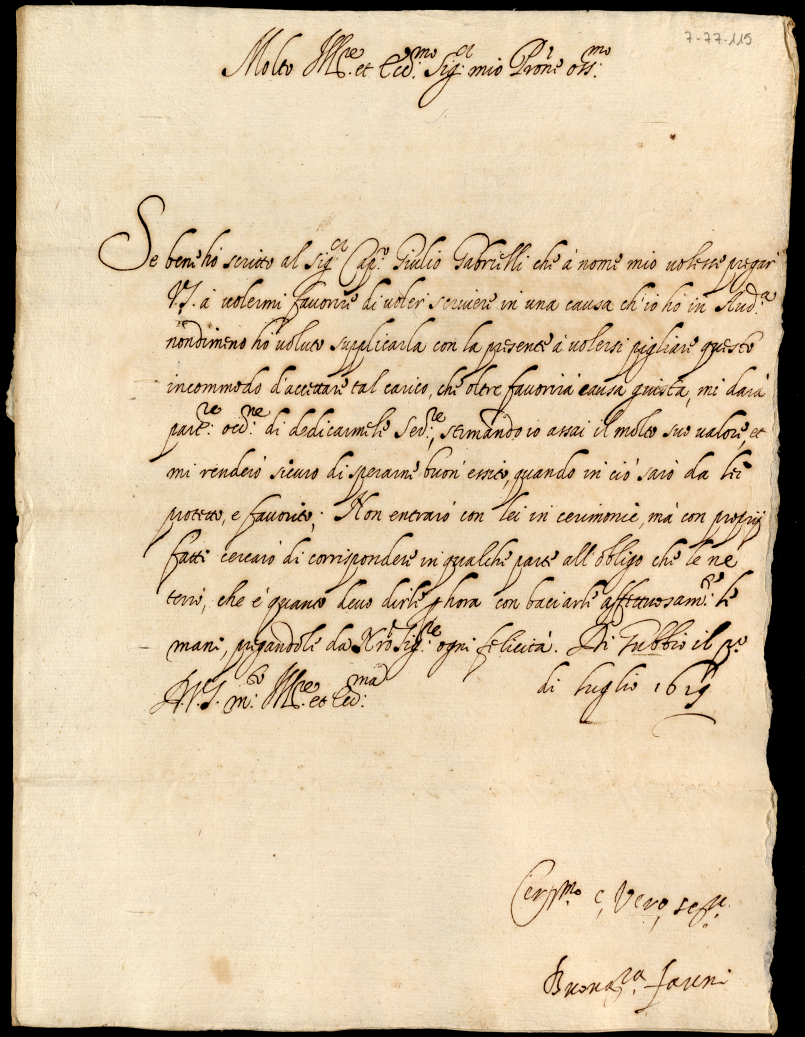 7-77-115
Molto Ill.re et Ecc.mo Sig.r mio P.rone oss.mo
Se bene hò scritto al Sig.r Cap.o Giulio Gabrielli che à nome mio volesse pregar
V.S. à volermi favorire di voler scrivere in una causa ch'io hò in Aud.a
nondimeno hò voluto supplicarla con la presente à volersi pigliare questo
incommodo d'accettare tal carico, che oltre favorirà causa giusta, mi darà
part.re occ.ne di dedicarmele Ser.re, stimando io assai il molto suo valore, et
mi renderò sicuro di sperarne buon' essito, quando in ciò sarò da lei
protetto, e favorito; Non entrarò con lei in cerimonie, mà con proprij
fatti cercarò di corrispondere in qualche parte all'obligo che le ne
terrò, che è quanto devo dirle p hora con baciarle affettuosam.te le
mani, pregandole da N.ro Sig.re ogni felicità. Di Gubbio il p.o
di luglio 1619
D.V.S. m.to Ill.re et Ecc.ma
e, vero, se.re